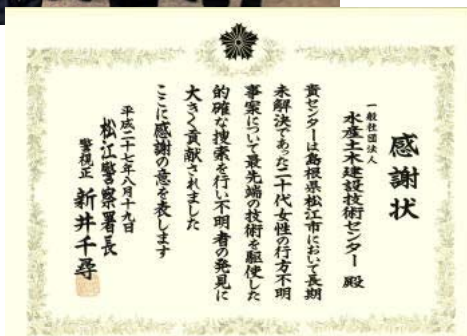 感謝状
一般社団法人
水産土木建設技術センター 殿
貴センターは島根県松江市において長期
未解決であった二十代女性の行方不明
事案について最先端の技術を駆使した
的確な捜索を行い不明者の発見に
大きく貢献されました
ここに感謝の意を表します
平成二十七年八月十九日
松江警察署長
警視正 新井千尋